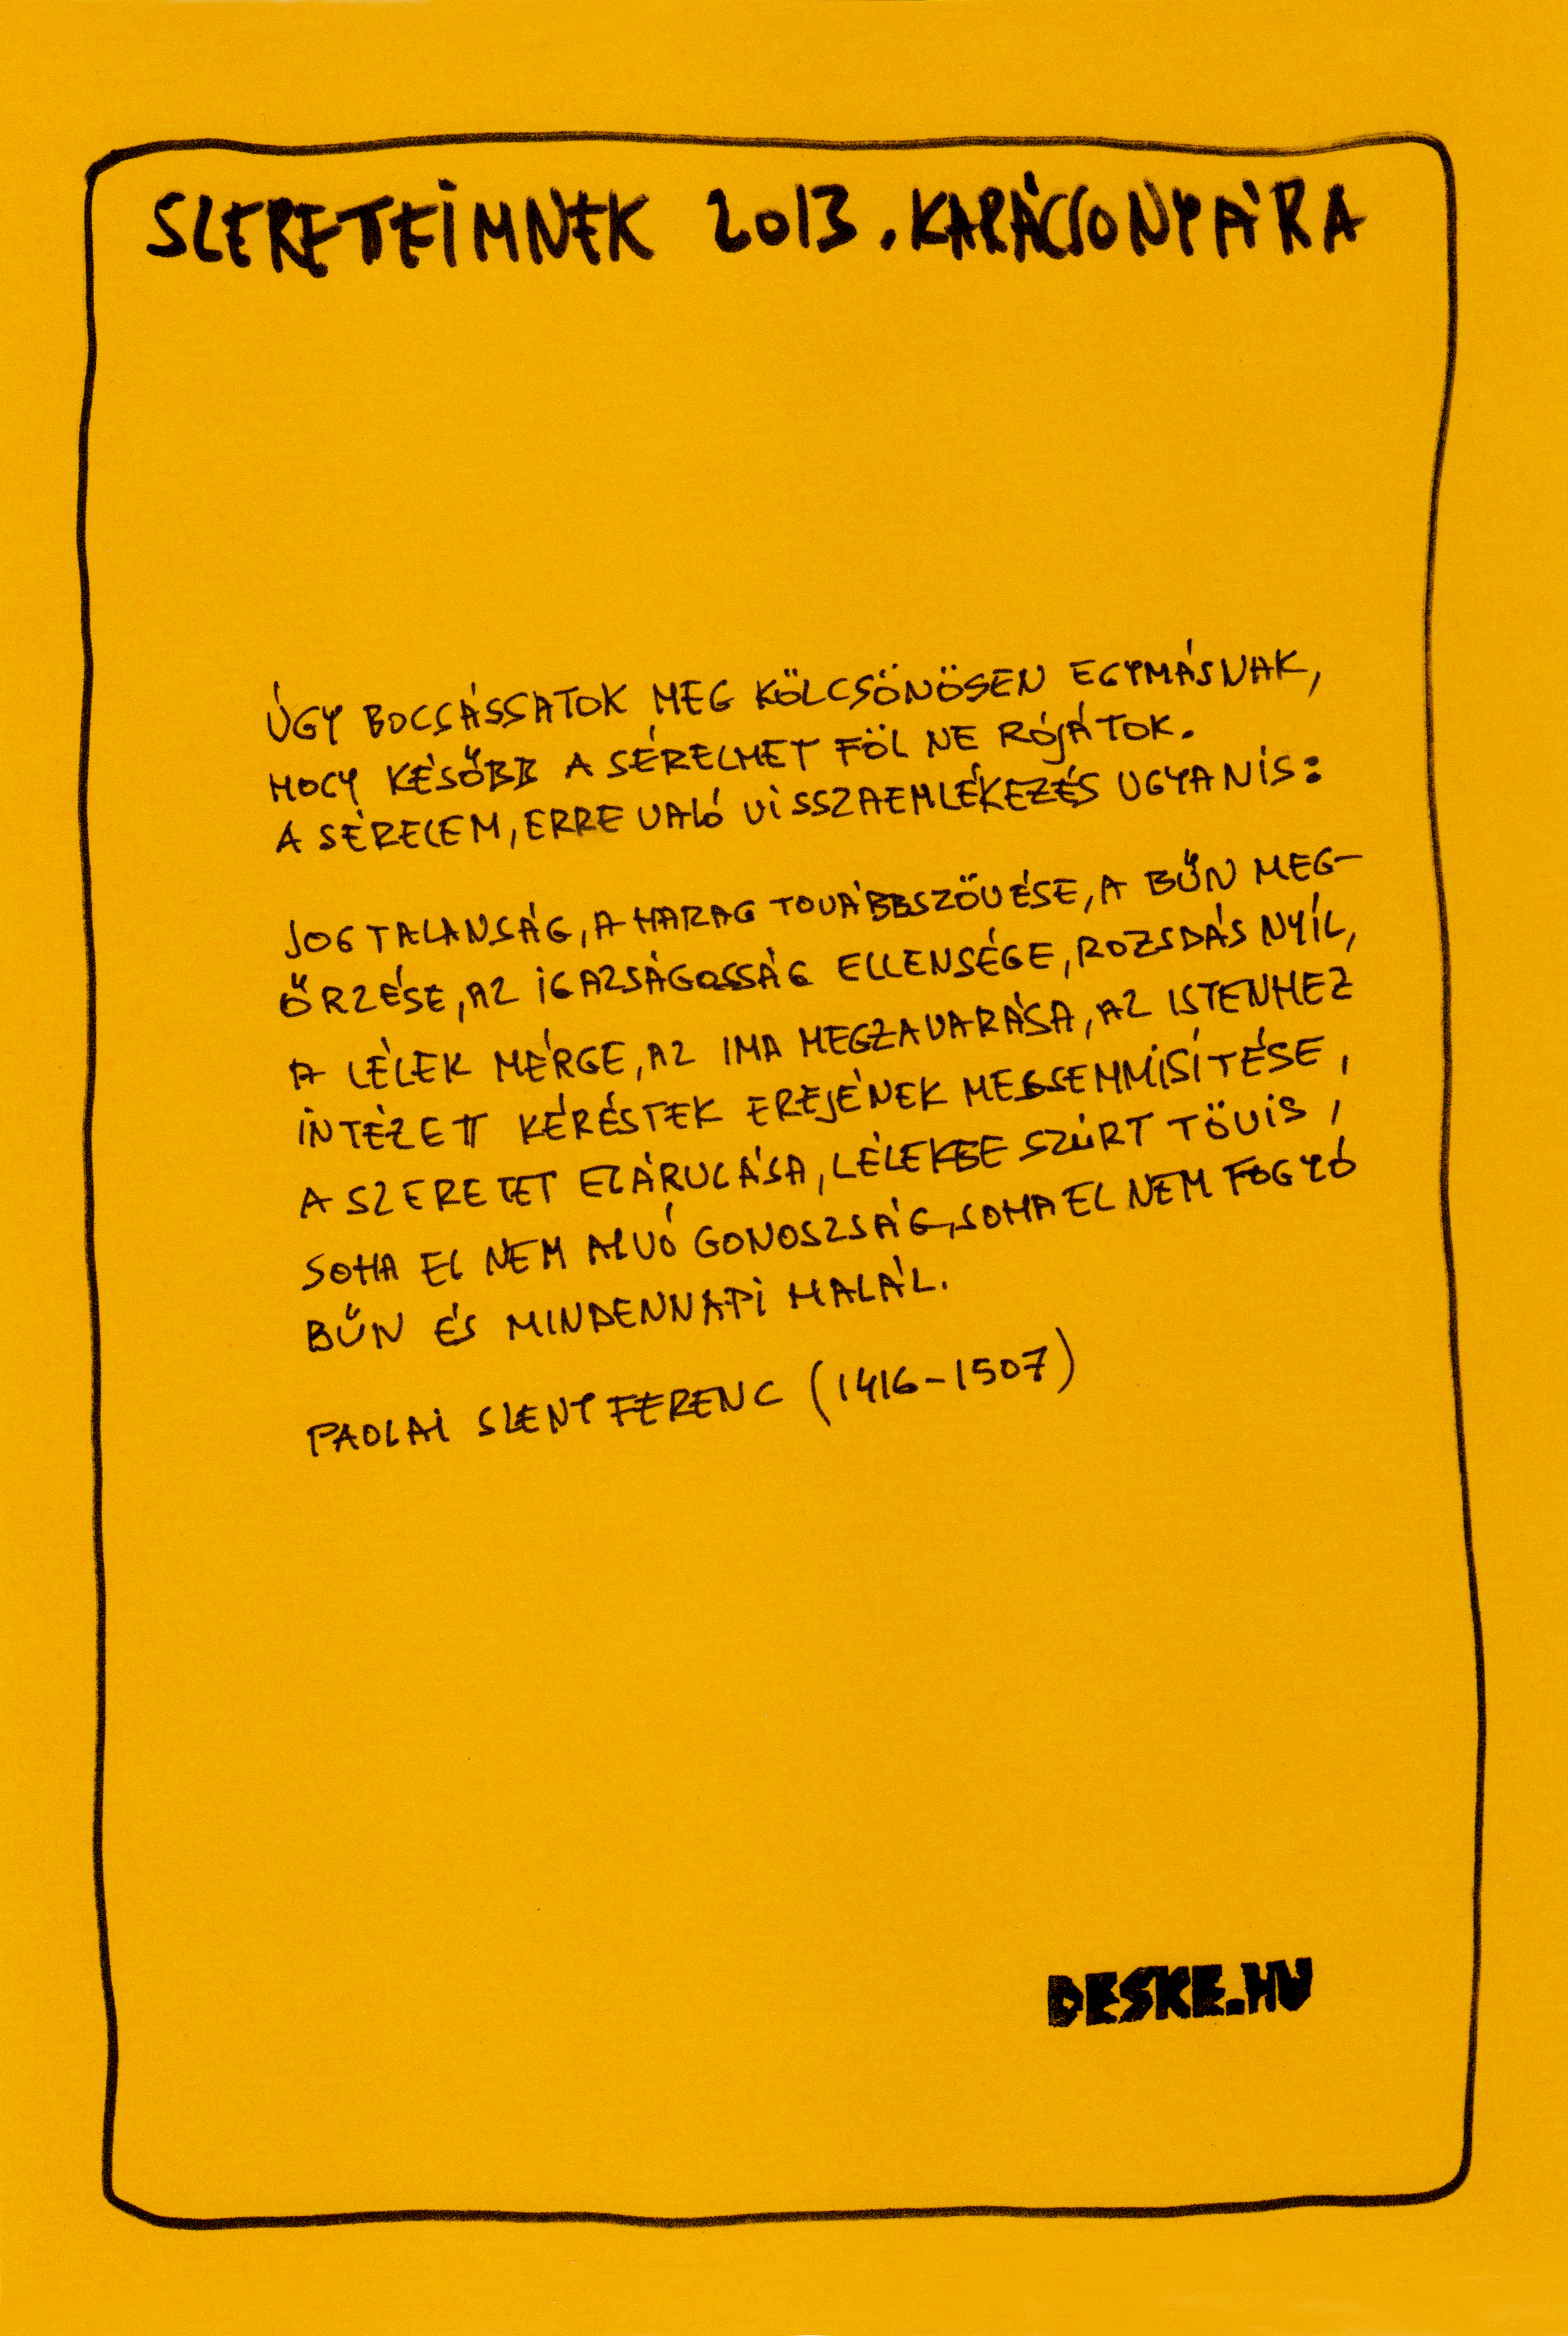 SZERETTEIMNEK 2013. KARÁCSONYÁRA
ÚGY BOCSÁSSATOK MEG KÖLCSÖNÖSEN EGYMÁSNAK,
HOGY KÉSŐBB A SÉRELMET FÖL NE RÓJÁTOK.
A SÉRELEM, ERRE VALÓ VISSZAEMLÉKEZÉS UGYANIS:
JOGTALANSÁG, A HARAG TOVÁBBSZÖVÉSE, A BŰN MEG-
ŐRZÉSE, AZ IGAZSÁGOSSÁG ELLENSÉGE, ROZSDÁS NYÍL,
A LÉLEK MÉRGE, AZ IMA MEGZAVARÁSA, AZ ISTENHEZ
INTÉZETT KÉRÉSTEK EREJÉNEK MEGSEMMISÍTÉSE,
A SZERETET ELÁRULÁSA, LÉLEKBE SZÚRT TÖVIS,
SOHA EL NEM ALVÓ GONOSZSÁG, SOHA EL NEM FOGYÓ
BŰN ÉS MINDENNAPI HALÁL.
PAOLAI SZENT FERENC (1416-1507)
DESKE.HU